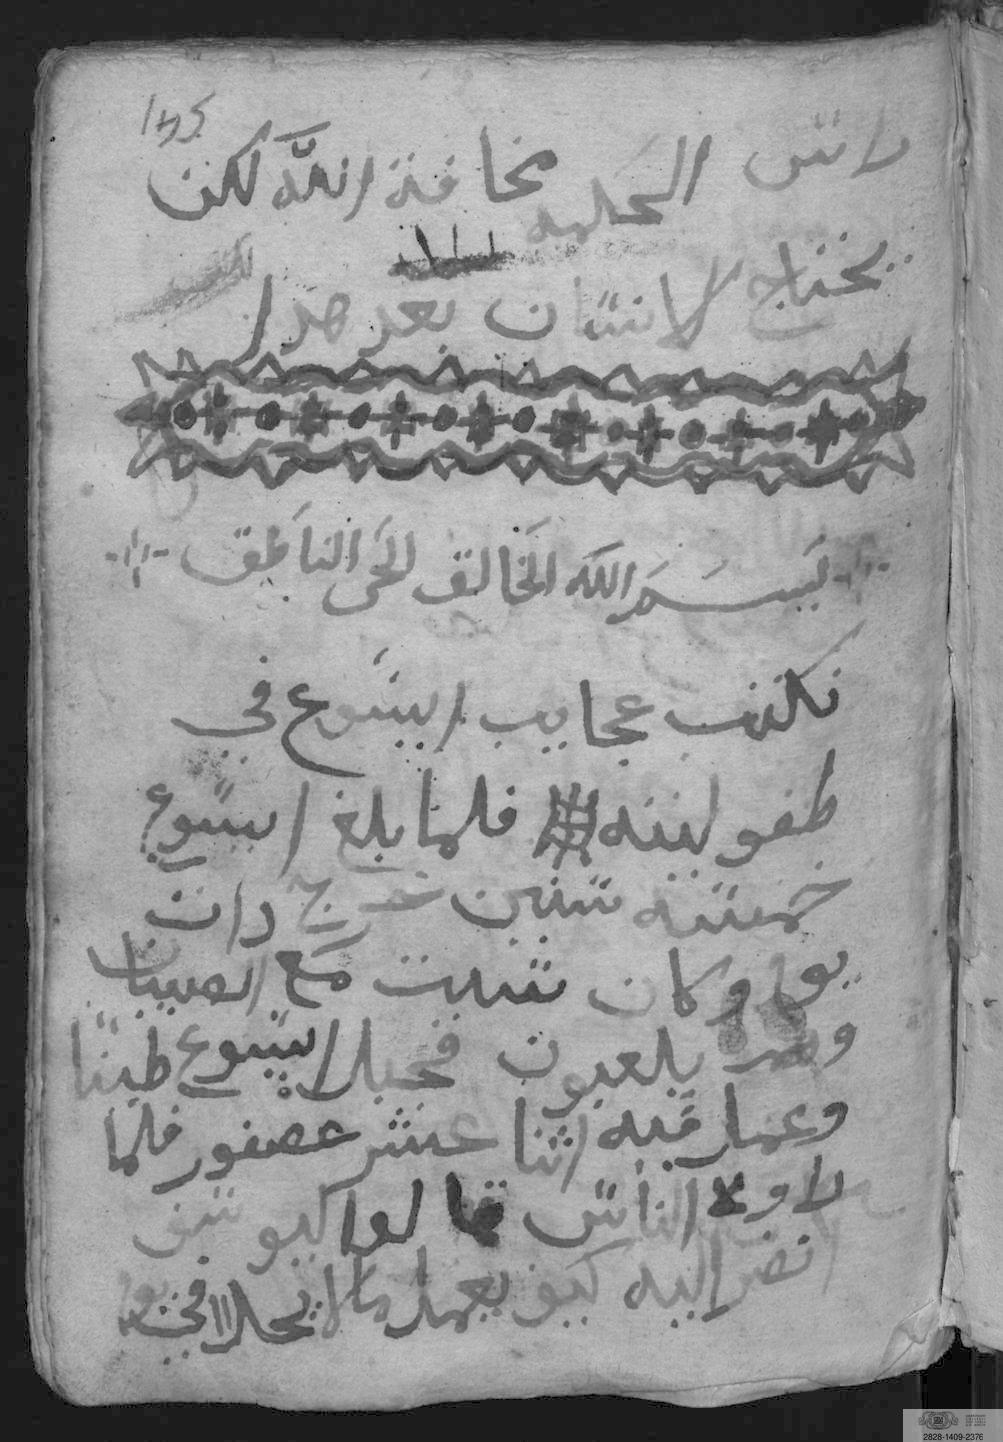 راس الحكمه مخافة الله لكن
يحتاج لانسان بعد هدا
بسم الله الخالق الحي الناطق
نكتب عجايب ايسوع في
طفوليته فلما بلغ ايسوع
خمسه سنين خرج دات
يوما وكان سبت مع الصبيان
وهم يلعبون فجبل ايسوع طينا
وعمل فيه اثنا عشر عصفور فلما
راوه الناس قالوا ليوسف
انضر اليه كيف يعمل ما لا يحل في
2828-1409-2376